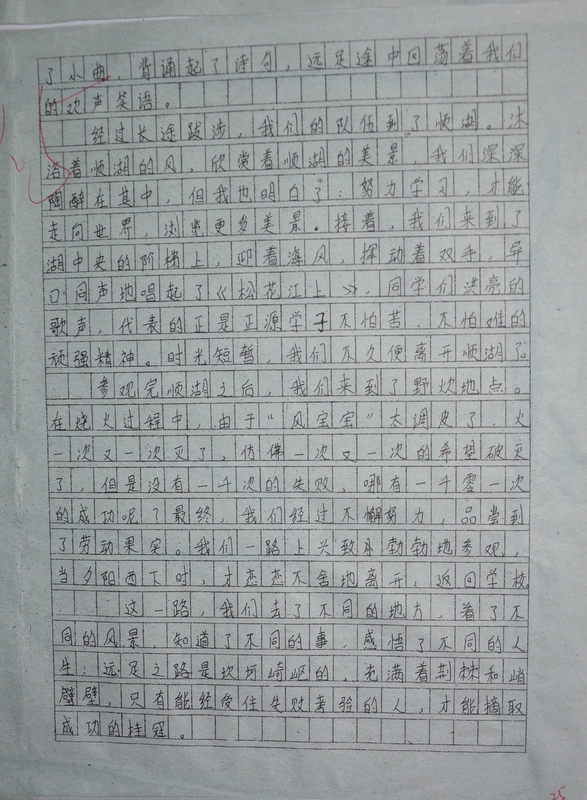 了小曲，背诵起了诗句，远足途中回荡着我们
的欢声笑语。
经过长途跋涉，我们的队伍到了顺湖。沐
浴着顺湖的风，欣赏着顺湖的美景，我们深深
陶醉在其中，但我也明白了：努力学习，才能
走向世界，浏览更多美景。接着，我们来到了
湖中央的阶梯上，迎着海风，挥动着双手，异
口同声地唱起了《松花江上》，同学们洪亮的
歌声，代表的正是正源学子不怕苦、不怕难的
顽强精神。时光短暂，我们不久便离开顺湖了。
参观完顺湖之后，我们来到了野炊地点。
在烧火过程中，由于“风宝宝”太调皮了，火
一次又一次灭了，仿佛一次又一次的希望破灭
了，但是没有一千次的失败，哪有一千零一次
的成功呢？最终，我们经过不懈努力，品尝到
了劳动果实。我们一路上兴致勃勃地参观，
当夕阳西下时，才恋恋不舍地离开，返回学校。
这一路，我们去了不同的地方，看了不
同的风景，知道了不同的事，感悟了不同的人
生：远足之路是坎坷崎岖的，充满着荆棘和峭
壁，只有能经受住失败考验的人，才能摘取
成功的桂冠。
25